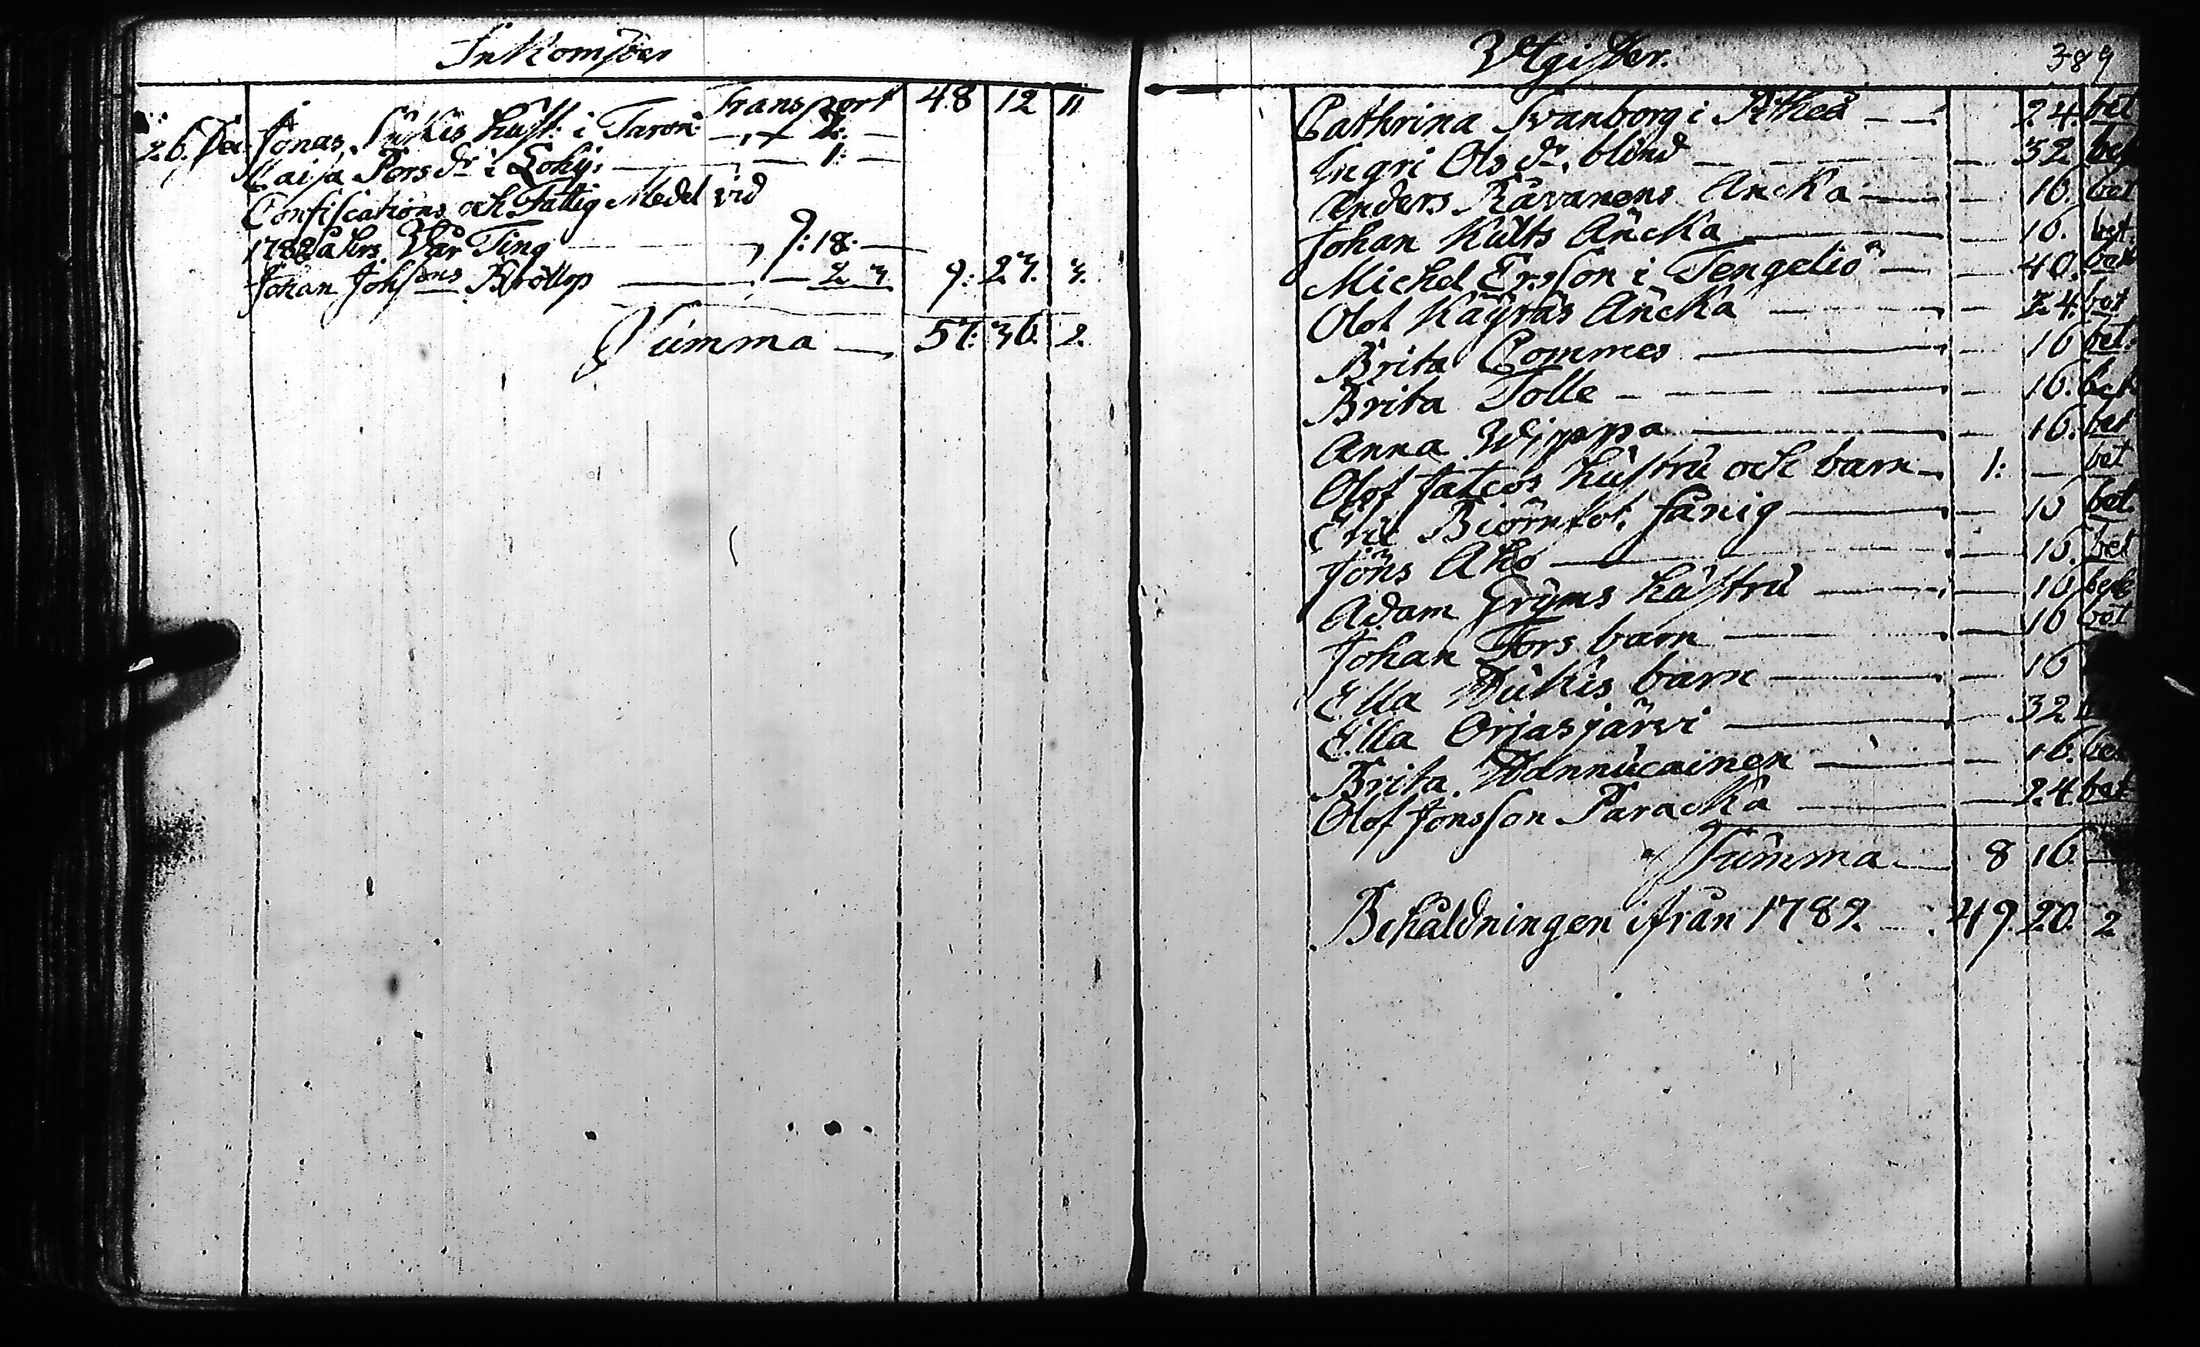 Inkomster
Transport 48 12 11
26. Dec. Jonas hust: i — 2: —
Caisa Pers dr i Lohij: — 1: —
Confiscations och Fattig Medel vid
1788 åhrs Vår Ting — 9: 18: —
Johan Johssons Bröllop — 2 3 9: 23. 3.
Summa — 57: 36. 2.
Utgifter. 389
Cathrina Svanborg i Pitheå — 24. bet
Ingri Ols dr. blind — 32 bet
Anders Råvanens Äncka — 16. bet
Johan Kults Äncka — 16. bet
Michel Ersson i Tengeliö — 40. bet
Olof Äncka — 24 bet
Brita Commes — 16 bet.
Brita Tolle — 16. bet
Anna Wippa — 16. bet
Olof hustru och barn — 1: — bet
Eric Biörnfot. fånig — 16 bet.
Jöns Aho — 16. bet
Adam Gryms hustru — 16 bet
Johan Fors barn — 16 bet
Ella barn — 16
Ella Orjasjärvi — 32
Brita Wannucainen — 16. bet
Olof Jonsson Paracka — 24. bet
Summa — 8 16. —
Behåldningen ifrån 1789 — 49. 20. 2